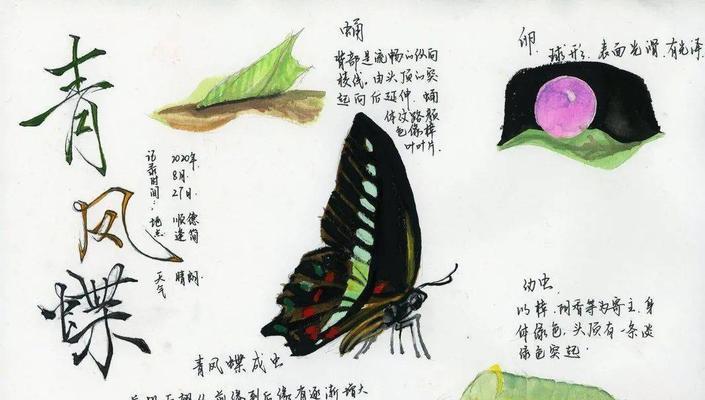 青凤蝶
记录时间:
2020年
8月
27日
地点
顺德
天气
晴朗
蛹
背部是流畅的纵向
棱线,由头顶的突
起向后延伸,蛹
体纹路颜
色像樟
叶叶片.
卵.
球形,表面光滑,有光泽.
青凤蝶成虫
幼虫
以樟、阴香等为寄主,身
体绿色,头顶有一条淡
绿色突起.